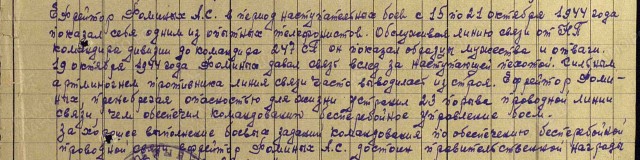 Ефрейтор Фоминых А.С. в период наступательных боев с 15 по 21 октября 1944 года
показал себя одним из опытных телефонистов. Обслуживая линию связи от НП
командира дивизии до командира 247 СП он показал образцы мужества и отваги.
19 октября 1944 года Фоминых давал связь вслед за наступающей пехотой. Сильным
артогнем противника линия связи часто выводилась из строя. Ефрейтор Фоми-
ных, пренебрегая опасностью для жизни устранил 23 порыва проводной линии
связи, чем обеспечил командованию бесперебойное управление боем.
За хорошее выполнение боевых заданий командования по обеспечению бесперебойной
проводной связи ефрейтор Фоминых А.С. достоин правительственной награды